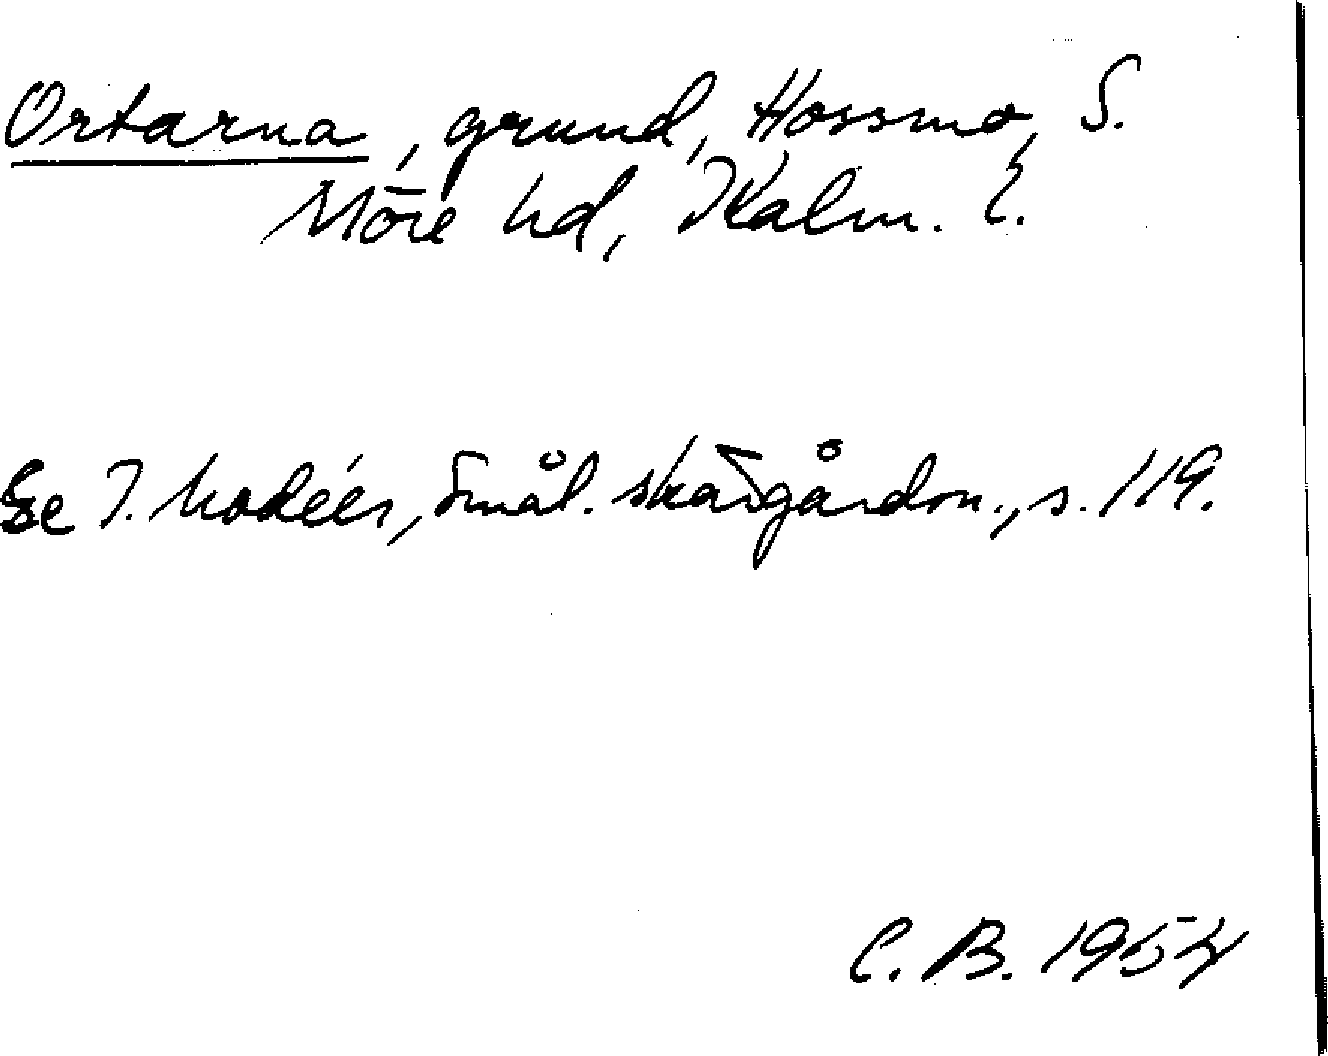 Ortarna, grund, Hossmo, S.
Möre hd, Kalm. l.
Se I. Modéer, Smål. skärgårdsn., s. 119.
C. B. 1954